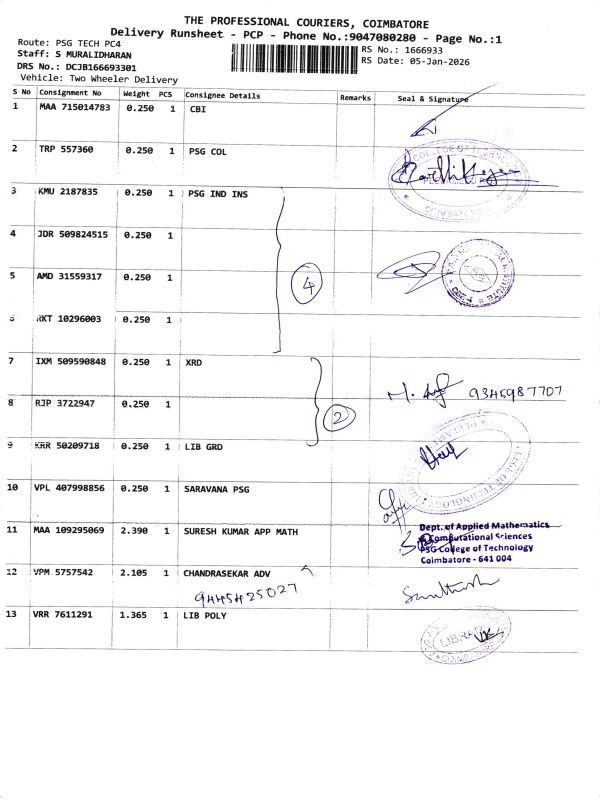 THE PROFESSIONAL COURIERS, COIMBATORE
Delivery Runsheet - PCP - Phone No.:9047080280 - Page No.:1
Route: PSG TECH PC4
Staff: S MURALIDHARAN
DRS No.: DCJB166693301
Vehicle: Two Wheeler Delivery
RS No.: 1666933
RS Date: 05-Jan-2026
S No Consignment No Weight PCS Consignee Details Remarks Seal & Signature
1 MAA 715014783 0.250 1 CBI
2 TRP 557360 0.250 1 PSG COL
3 KMU 2187835 0.250 1 PSG IND INS
4 JDR 509824515 0.250 1
5 AMD 31559317 0.250 1
4
6 RKT 10296003 0.250 1
7 IXM 509590848 0.250 1 XRD
9345987707
8 RJP 3722947 0.250 1
2
9 KRR 50209718 0.250 1 LIB GRD
10 VPL 407998856 0.250 1 SARAVANA PSG
11 MAA 109295069 2.390 1 SURESH KUMAR APP MATH
Dept. of Applied Mathematics
& Computational Sciences
PSG College of Technology
Coimbatore - 641 004
12 VPM 5757542 2.105 1 CHANDRASEKAR ADV
9445425027
13 VRR 7611291 1.365 1 LIB POLY